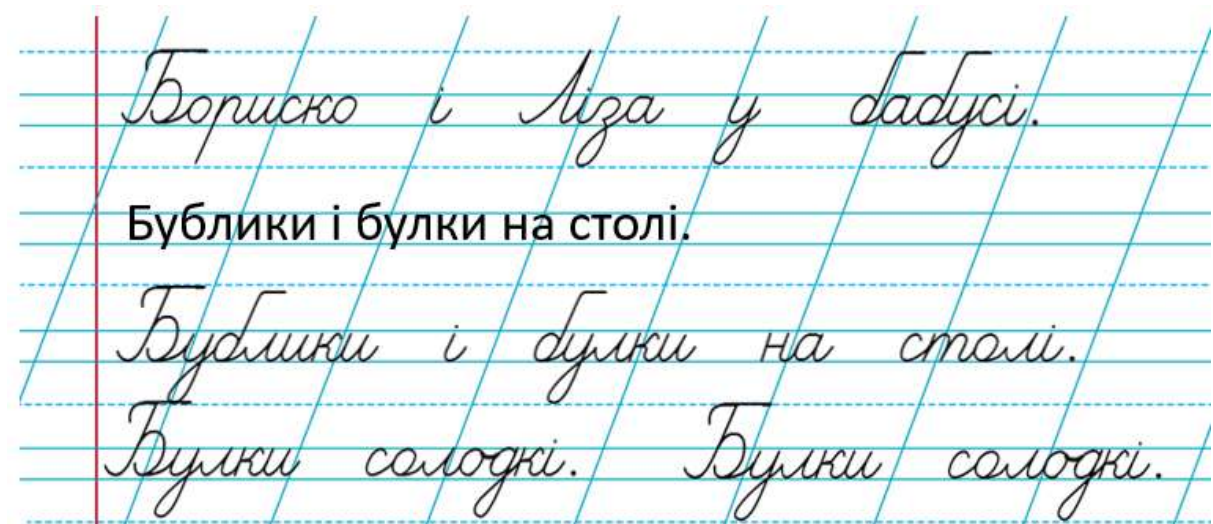 Бориско і Ліза у бабусі.
Бублики і булки на столі.
Бублики і булки на столі.
Булки солодкі. Булки солодкі.